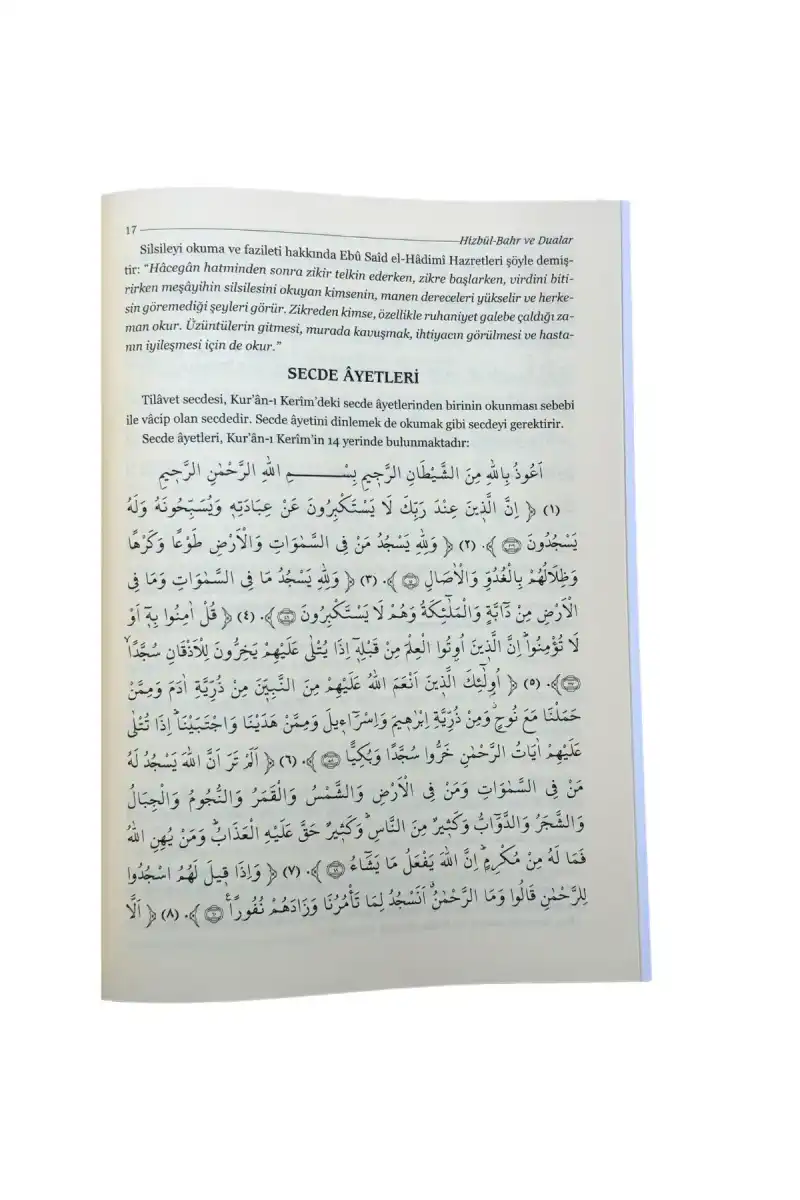 17
Hizbül-Bahr ve Dualar
Silsileyi okuma ve fazileti hakkında Ebû Saîd el-Hâdimî Hazretleri şöyle demiş-
tir: “Hâcegân hatminden sonra zikir telkin ederken, zikre başlarken, virdini biti-
rirken meşâyihin silsilesini okuyan kimsenin, manen dereceleri yükselir ve herke-
sin göremediği şeyleri görür. Zikreden kimse, özellikle ruhaniyet galebe çaldığı za-
man okur. Üzüntülerin gitmesi, murada kavuşmak, ihtiyacın görülmesi ve hasta-
nın iyileşmesi için de okur.”
SECDE ÂYETLERİ
Tilâvet secdesi, Kur’ân-ı Kerîm’deki secde âyetlerinden birinin okunması sebebi
ile vâcip olan secdedir. Secde âyetini dinlemek de okumak gibi secdeyi gerektirir.
Secde âyetleri, Kur’ân-ı Kerîm’in 14 yerinde bulunmaktadır:
اَعُوذُ بِاللّٰهِ مِنَ الشَّيْطَانِ الرَّجٖيمِ بِسْـــــــــمِ اللّٰهِ الرَّحْمٰنِ الرَّحٖيمِ
(١) ﴿ اِنَّ الَّذٖينَ عِنْدَ رَبِّكَ لَا يَسْتَكْبِرُونَ عَنْ عِبَادَتِهٖ وَيُسَبِّحُونَهُ وَلَهُ
يَسْجُدُونَ ﴾. (٢) ﴿ وَلِلّٰهِ يَسْجُدُ مَنْ فِى السَّمٰوَاتِ وَالْاَرْضِ طَوْعًا وَكَرْهًا
وَظِلَالُهُمْ بِالْغُدُوِّ وَالْاٰصَالِ ﴾. (٣) ﴿ وَلِلّٰهِ يَسْجُدُ مَا فِى السَّمٰوَاتِ وَمَا فِى
الْاَرْضِ مِنْ دَٓابَّةٍ وَالْمَلٰٓئِكَةُ وَهُمْ لَا يَسْتَكْبِرُونَ ﴾. (٤) ﴿ قُلْ اٰمِنُوا بِهٖٓ اَوْ
لَا تُؤْمِنُواۜ اِنَّ الَّذٖينَ اُوتُوا الْعِلْمَ مِنْ قَبْلِهٖٓ اِذَا يُتْلٰى عَلَيْهِمْ يَخِرُّونَ لِلْاَذْقَانِ سُجَّدًاۙ
﴾. (٥) ﴿ اُولٰٓئِكَ الَّذٖينَ اَنْعَمَ اللّٰهُ عَلَيْهِمْ مِنَ النَّبِيّٖنَ مِنْ ذُرِّيَّةِ اٰدَمَ وَمِمَّنْ
حَمَلْنَا مَعَ نُوحٍ وَمِنْ ذُرِّيَّةِ اِبْرٰهٖيمَ وَاِسْرَٓائٖيلَ وَمِمَّنْ هَدَيْنَا وَاجْتَبَيْنَاۜ اِذَا تُتْلٰى
عَلَيْهِمْ اٰيَاتُ الرَّحْمٰنِ خَرُّوا سُجَّدًا وَبُكِيًّا ﴾. (٦) ﴿ اَلَمْ تَرَ اَنَّ اللّٰهَ يَسْجُدُ لَهُ
مَنْ فِى السَّمٰوَاتِ وَمَنْ فِى الْاَرْضِ وَالشَّمْسُ وَالْقَمَرُ وَالنُّجُومُ وَالْجِبَالُ
وَالشَّجَرُ وَالدَّوَٓابُّ وَكَثٖيرٌ مِنَ النَّاسِۜ وَكَثٖيرٌ حَقَّ عَلَيْهِ الْعَذَابُۜ وَمَنْ يُهِنِ اللّٰهُ
فَمَا لَهُ مِنْ مُكْرِمٍۜ اِنَّ اللّٰهَ يَفْعَلُ مَا يَشَٓاءُ ﴾. (٧) ﴿ وَاِذَا قٖيلَ لَهُمُ اسْجُدُوا
لِلرَّحْمٰنِ قَالُوا وَمَا الرَّحْمٰنُ اَنَسْجُدُ لِمَا تَأْمُرُنَا وَزَادَهُمْ نُفُورًا ﴾. (٨) ﴿ اَلَّا